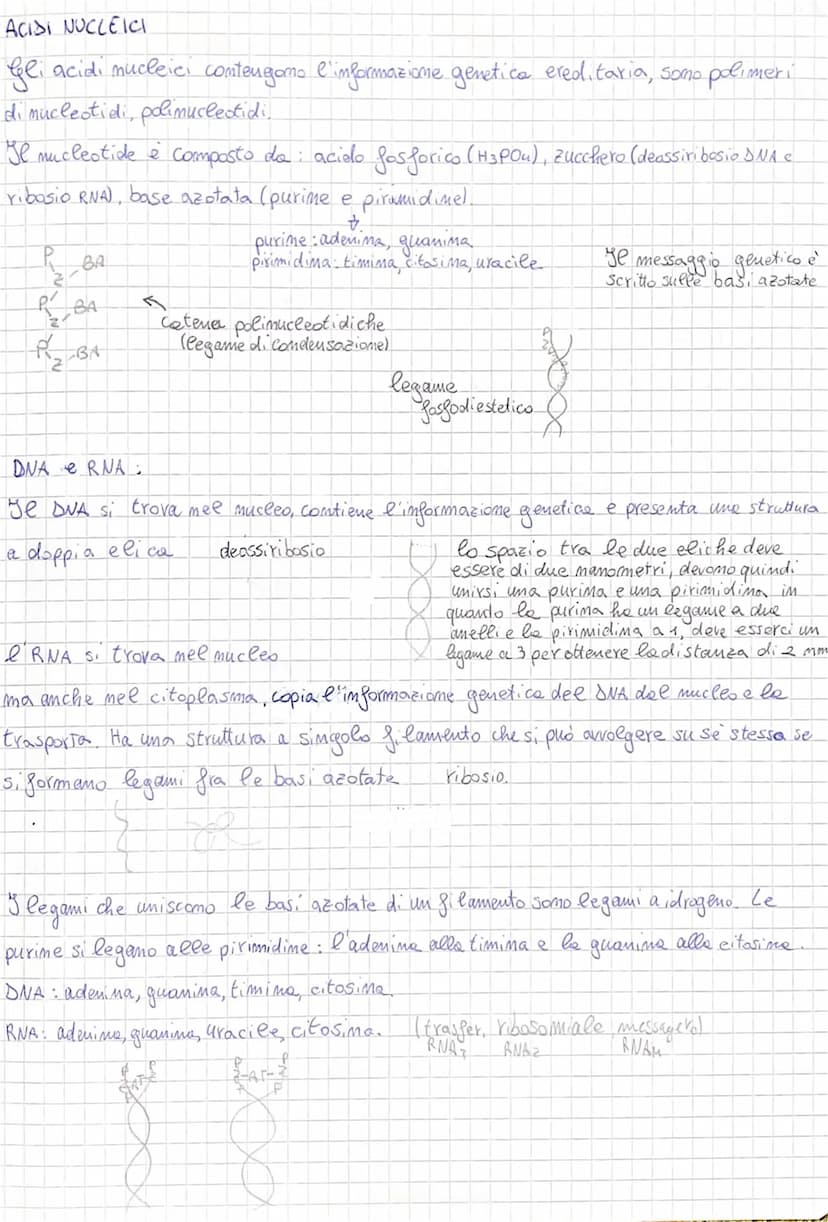 ACIDI NUCLEICI
Gli acidi nucleici contengono l'informazione genetica ereditaria, sono polimeri
di nucleotidi, polinucleotidi.
Il nucleotide è composto da: acido fosforico (H3PO4), zucchero (deassiribosio DNA e
ribosio RNA), base azotata (purine e piramidine).
purine: adenina, guanina
pirimidina: timina, citosina, uracile
Il messaggio genetico è
scritto sulle basi azotate
P
Z-BA
P
Z-BA
P
Z-BA
Catena polinucleotidiche
(legame di condensazione)
legame
fosfodiestelico
DNA e RNA:
Il DNA si trova nel nucleo, contiene l'informazione genetica e presenta una struttura
a doppia elica deossiribosio
lo spazio tra le due eliche deve
essere di due nanometri, devono quindi
unirsi una purina e una pirimidina, in
quanto la purina ha un legame a due
anelli e la pirimidina a 1, deve esserci un
legame a 3 per ottenere la distanza di 2 nm
l'RNA si trova nel nucleo
ma anche nel citoplasma, copia l'informazione genetica del DNA dal nucleo e la
trasporta. Ha una struttura a singolo filamento che si può avvolgere su se stessa se
si formano legami fra le basi azotate ribosio.
I legami che uniscono le basi azotate di un filamento sono legami a idrogeno. Le
purine si legano alle pirimidine: l'adenina alla timina e la guanina alla citosina.
DNA: adenina, guanina, timina, citosina.
RNA: adenina, guanina, uracile, citosina. (trasfer, ribosomiale, messagero)
RNAT RNAZ RNAM
P P
Z-AT-Z
P P
Z-AT-Z
P